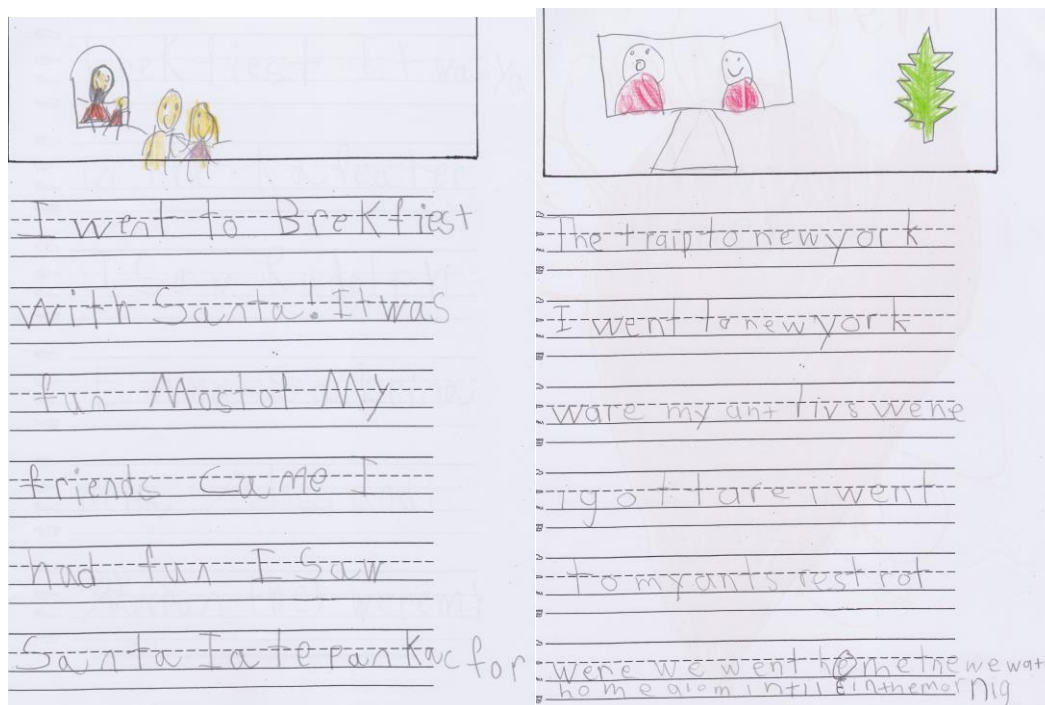 I went to Brekfiest
with Santa! It was
fun Most of My
friends Came I
had fun I Saw
Santa I ate pankac for
The traip to new york
I went to new york
ware my ant livs wene
i got tare i went
to my ants rest rot
were we went home we wat
home in the mornig